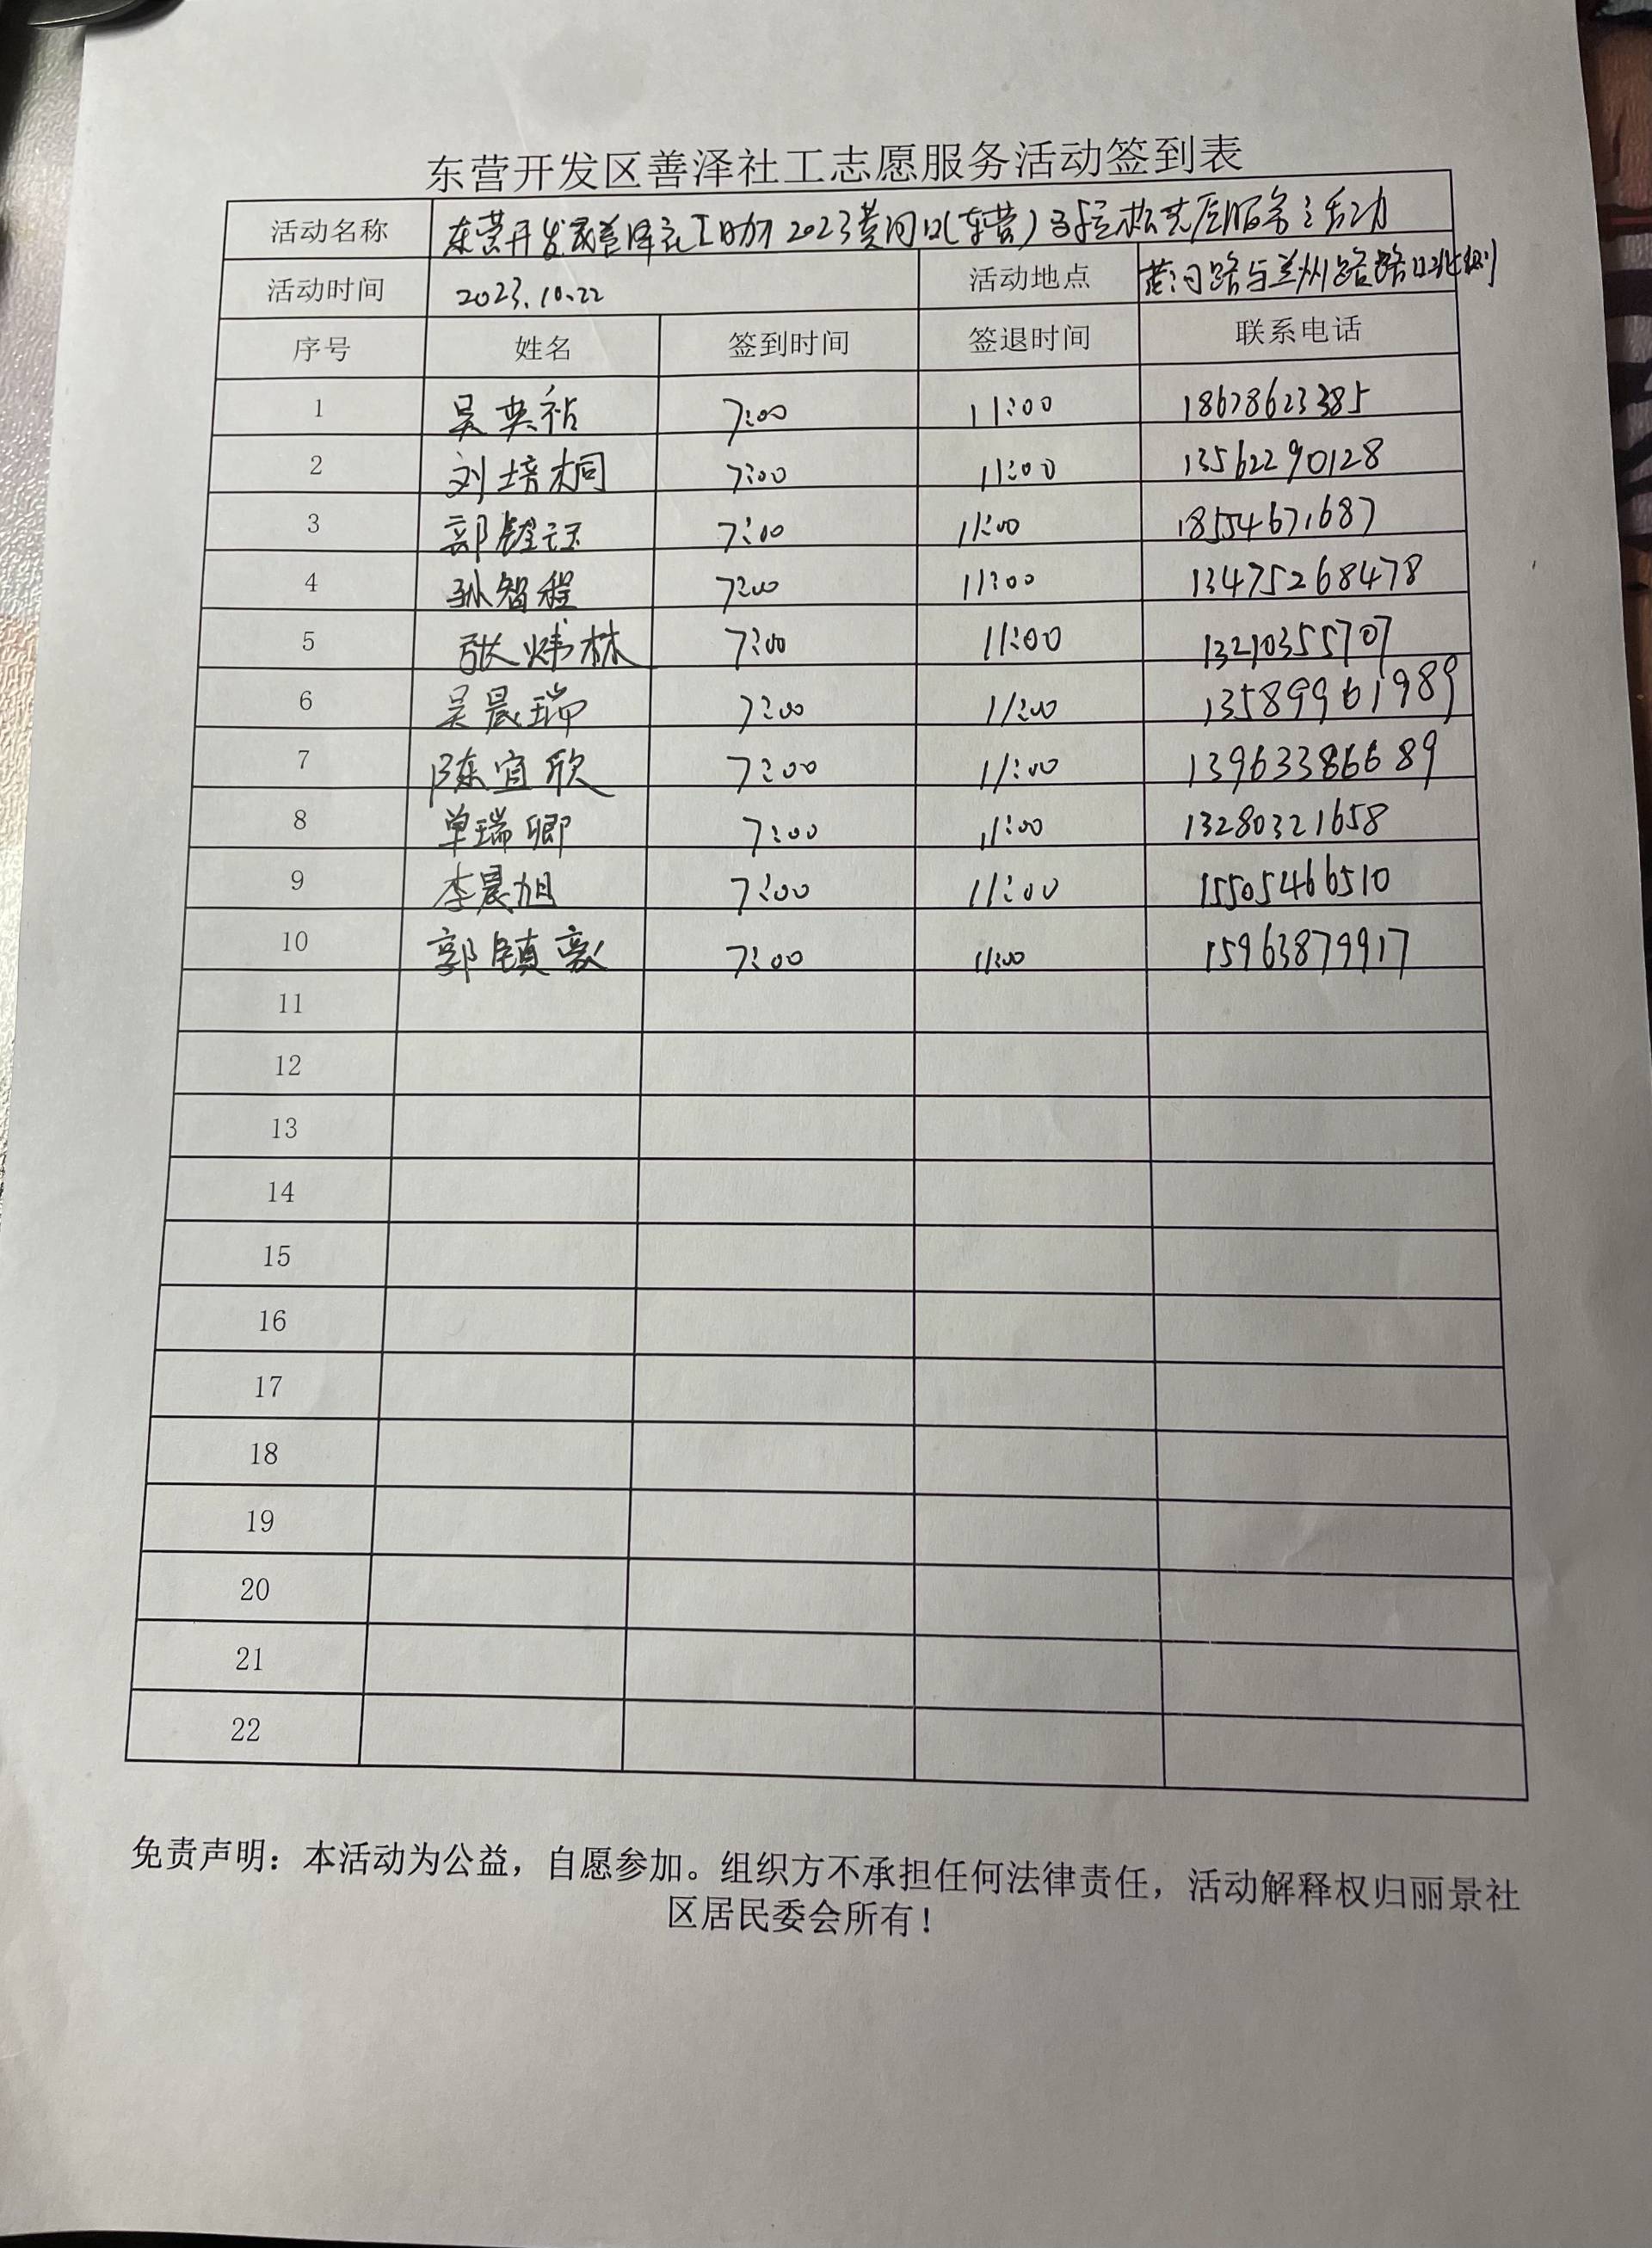 东营开发区善泽社工志愿服务活动签到表
活动名称 东营开发区善泽社工助力2023黄河口(东营)马拉松志愿服务活动
活动时间 2023.10.22 活动地点 黄河路与兰州路路口北侧
序号 姓名 签到时间 签退时间 联系电话
1 吴奕祐 7:00 11:00 18678623385
2 刘培桐 7:00 11:00 13562290128
3 郭 7:00 11:00 18554671687
4 孙智程 7:00 11:00 13475268478
5 张炜林 7:00 11:00 13210355707
6 吴晨瑞 7:00 11:00 13589961989
7 陈宜欣 7:00 11:00 13963386689
8 单瑞卿 7:00 11:00 13280321658
9 李晨旭 7:00 11:00 15505466510
10 郭镇豪 7:00 11:00 15963879917
11
12
13
14
15
16
17
18
19
20
21
22
免责声明：本活动为公益，自愿参加。组织方不承担任何法律责任，活动解释权归丽景社
区居民委会所有！